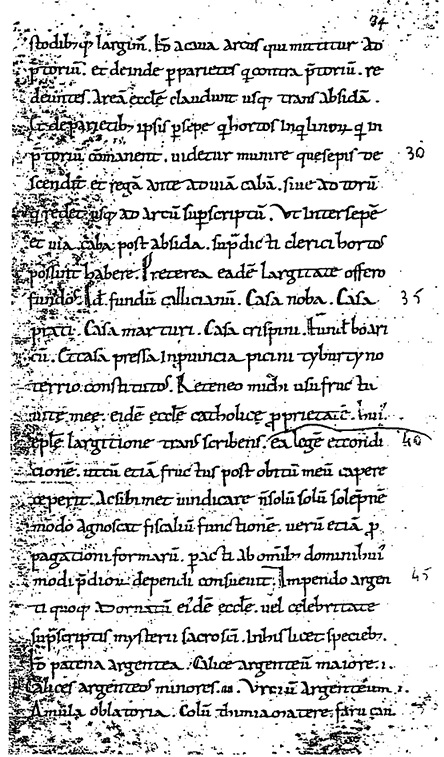 34
stodibꝫ qꝫ largim̄. Id̄ a caua arcus qui mittitur ad
p̄toriū. et deinde p parietes q contra p̄toriū. re
deuntes. Areā eccłe claudunt usqꝫ trans absidā.
Et de parietibꝫ ipsis p sepe q hortos inqlinoꝝ q in
p̄torium cōmanent. uidetur munire que sepis de 30
scendit et regā ante ad uiā cabā. siue ad torū
q redet usqꝫ ad artū sup̄scriptū. Ut inter sepē
et uia caba post absida. sup̄dicti clerici hortos
possint habere. Preterea eadē largitate offero
fundos. Id. fundū callicianū. Casa noba. Casa 35
prati. Casa marturi. Casa crispini. boari
cū. Et casa pressa In puincia picini tyburtyno
terrio constitutos. Reteneo michi usufructū
uite mee. eidē eccłe catholice pprietatē. huiꝰ
epłe largitione transscribens. ea legē et condi 40
cione. ut cū etiā fructus post obitū meū capere
ceperit. Ac sibimet uindicare n̄ solū solū solepnē
modo agnoscat fiscaliū functionē. uerū etiā p
pagationi formarū. pacti ab omibꝫ dominibuꝰ
modi p̄dioꝝ dependi consueuit. Impendo argen 45
ti quoqꝫ ad ornatū eidē eccłe. uel celebritate
sup̄scriptis mysterii sacrosc̄i. In his licet speciebꝫ.
Id̄ patena argentea. Calice argenteū maiore. i.
Calices argenteos minores. ii. Urceū argenteum. i.
Amula oblatoria. Colū. thimiamatere. farū can